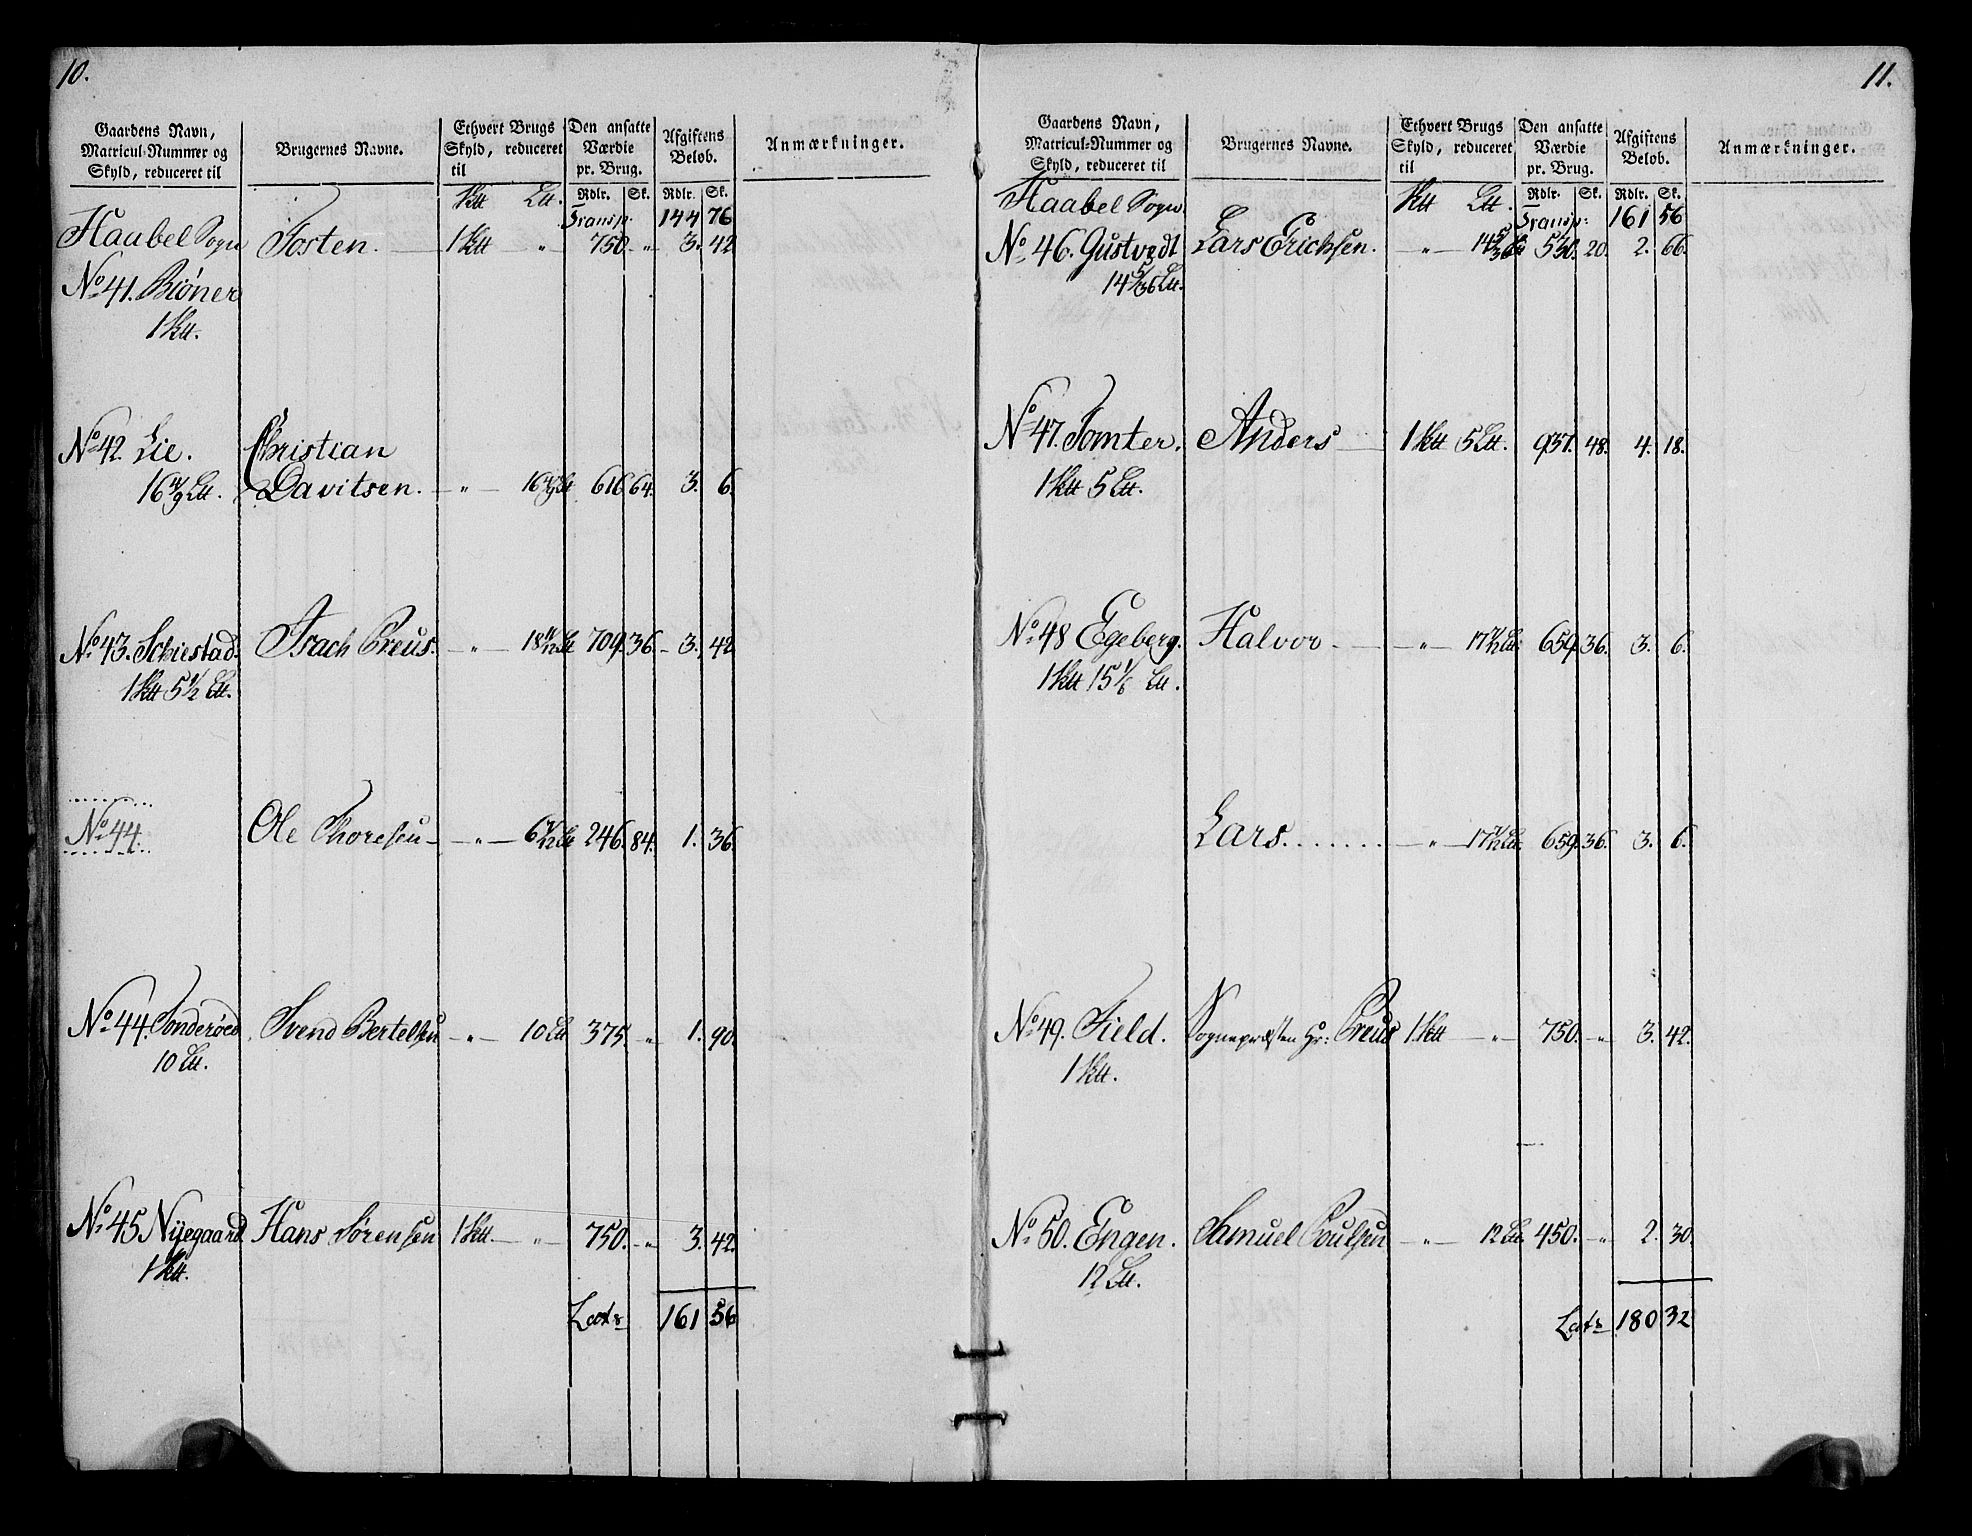 10.
Gaardens Navn, Matricul-Nummer og Skyld, reduceret til | Brugernes Navne. | Ethvert Brugs Skyld, reduceret til | Den ansatte Værdie pr. Brug. | Afgiftens Beløb. | Anmærkninger.
Rdlr. Sk. Rdlr. Sk.
Haabel Sogn Transp: 144 76
Tosten. 1 " 750. " 3. 42
No 41. Biöner
1
No 42. Lie. Christian
16 4/9 Davitsen. " 16 4/9 616. 64. 3. 6.
No 43. Schiestad. Isach Creus. " 18 11/12 709. 36. 3. 42
1 5 1/2
No 44. Ole Thoresen " 6 7/12 246. 84. 1. 36.
No 44. Sonderöed Svend Bertelsen " 10 375. " 1. 90.
10
No 45. Nyegaard Hans Sørensen 1 " 750. " 3. 42.
1
Lats 161 56
11.
Gaardens Navn, Matricul-Nummer og Skyld, reduceret til | Brugernes Navne. | Ethvert Brugs Skyld, reduceret til | Den ansatte Værdie pr. Brug. | Afgiftens Beløb. | Anmærkninger.
Rdlr. Sk. Rdlr. Sk.
Haabel Sogn. Transp: 161 56
No 46. Gustvedt Lars Erichsen. " 14 5/36 530. 20. 2. 66.
14 5/36
No 47. Tomter. Anders 1 5 937. 48. 4. 18.
1 5
No 48 Egeberg. Halvor " 17 7/12 659. 36. 3. 6.
1 15 1/6
Lars. " 17 7/12 659. 36. 3. 6.
No 49. Field. Sognepræsten Hr: Creus 1 " 750. " 3. 42.
1
No 50. Engen. Samuel Poulsen " 12 450. " 2. 30.
12
Lats 180 32